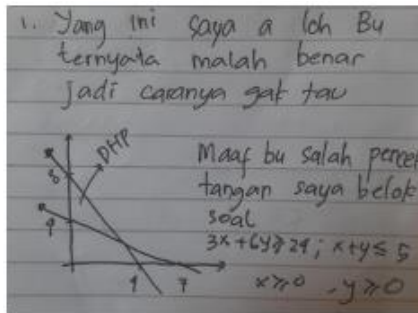 1. Yang ini saya a loh Bu
ternyata malah benar
jadi caranya gak tau
DHP
8
4
4
7
Maaf bu salah pencet
tangan saya belok
soal
3x+6y≥24; x+y≤5
x≥0, y≥0